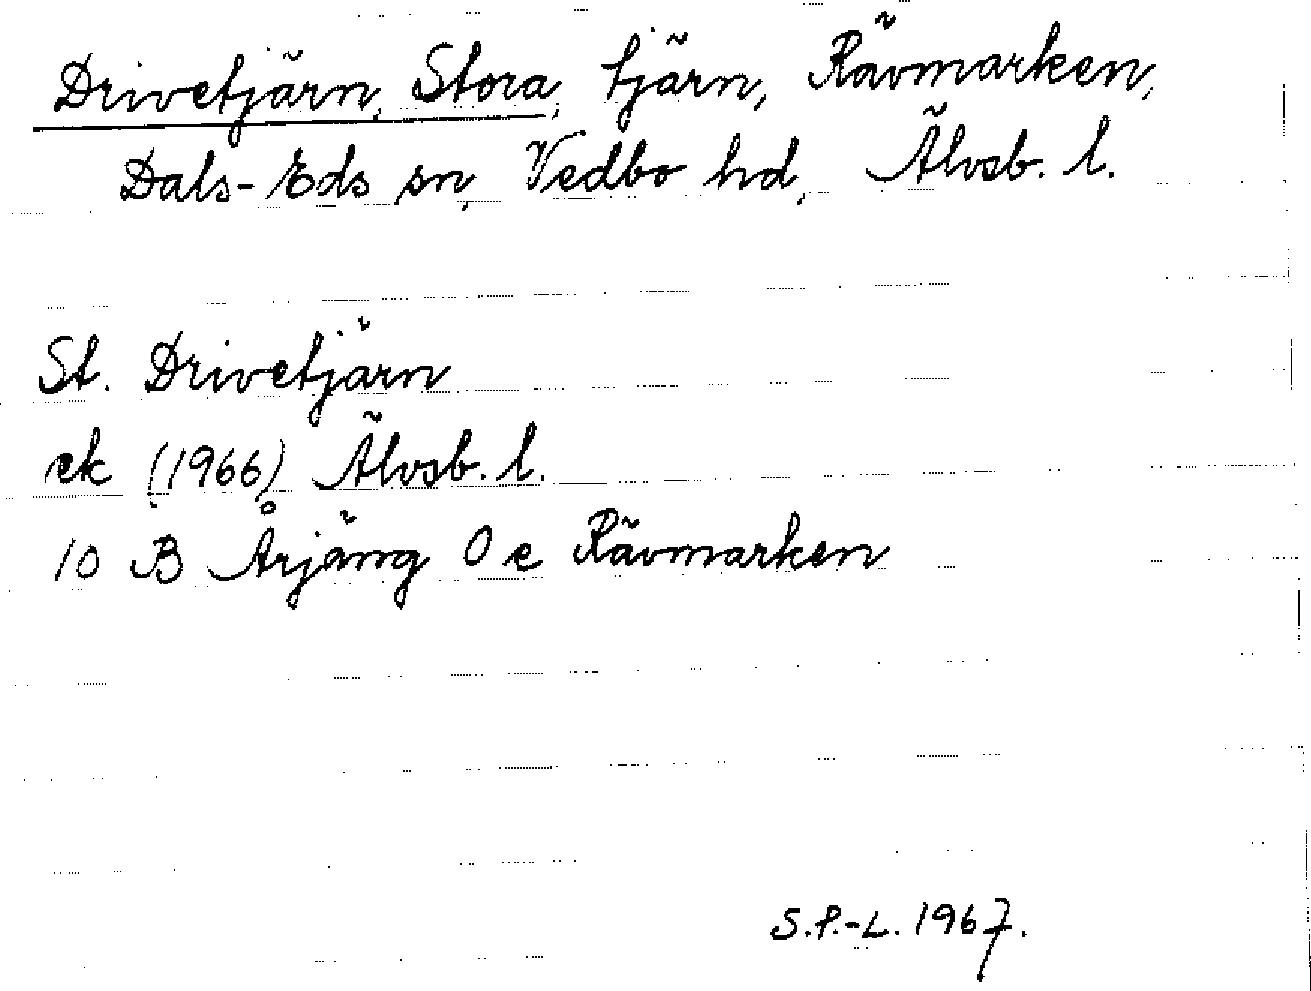 Drivetjärn, Stora, tjärn, Rävmarken,
Dals-Eds sn, Vedbo hd, Älvsb. l.
St. Drivetjärn
ek (1966) Älvsb. l.
10 B Årjäng 0 e Rävmarken
S.P.-L. 1967.